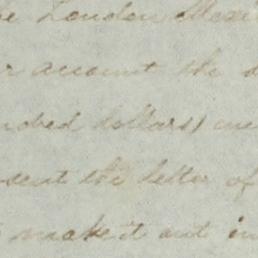 London
account the
dollars)
sent the letter of
make it out in